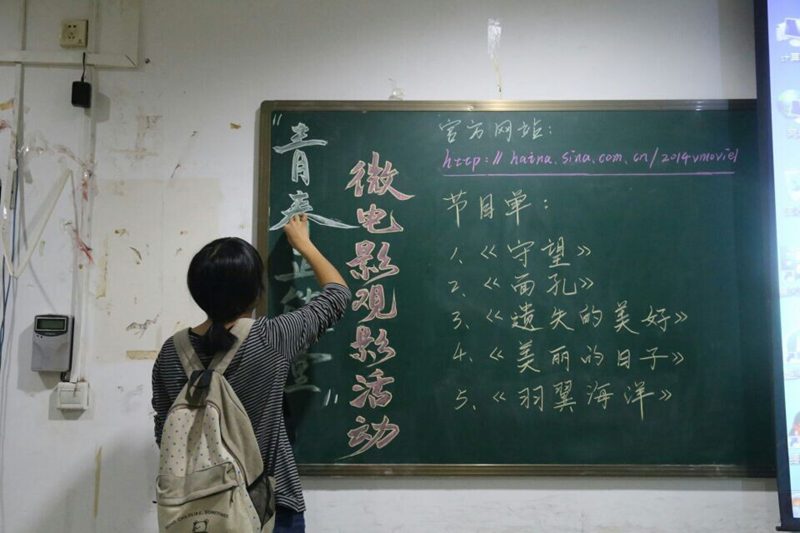 “青春正能量”
微电影观影活动
官方网站:
http://haina.sina.com.cn/2014vmovie1
节目单:
1、《守望》
2、《面孔》
3、《遗失的美好》
4、《美丽的日子》
5、《羽翼海洋》